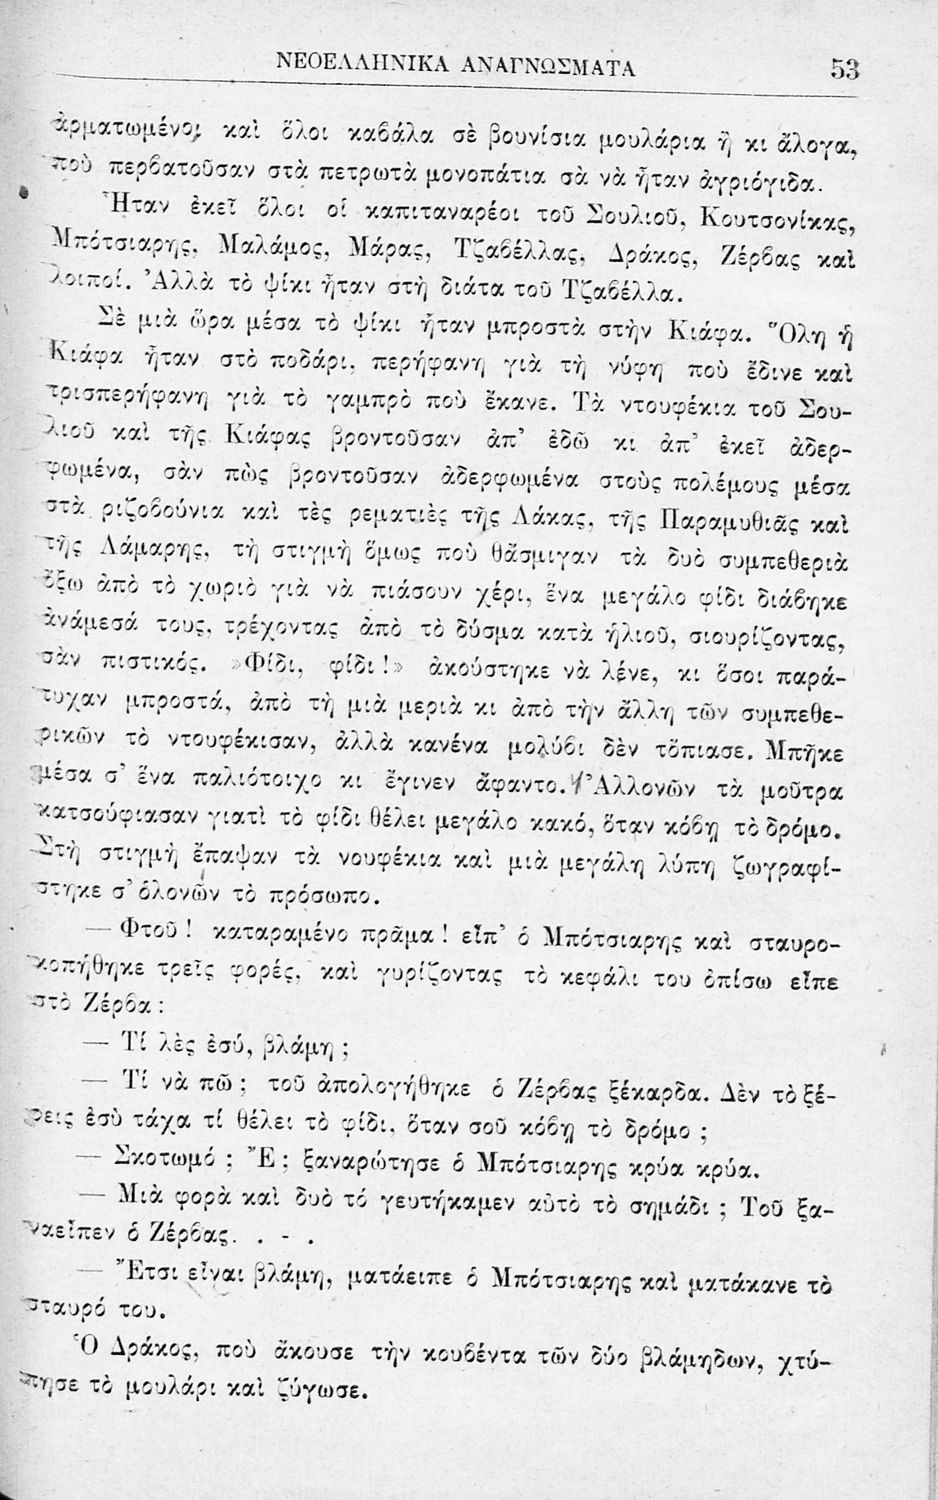 ΝΕΟΕΛΛΗΝΙΚΑ ΑΝΑΓΝΩΣΜΑΤΑ 53
ἁρματωμένοι καὶ ὅλοι καβάλα σὲ βουνίσια μουλάρια ἢ κι ἄλογα,
ποὺ περβατοῦσαν στὰ πετρωτὰ μονοπάτια σὰ νὰ ἦταν ἀγριόγιδα.
Ἦταν ἐκεῖ ὅλοι οἱ καπιταναρέοι τοῦ Σουλιοῦ, Κουτσονίκας,
Μπότσιαρης, Μαλάμος, Μάρας, Τζαβέλλας, Δράκος, Ζέρβας καὶ
λοιποί. Ἀλλὰ τὸ ψίκι ἦταν στὴ διάτα τοῦ Τζαβέλλα.
Σὲ μιὰ ὥρα μέσα τὸ ψίκι ἦταν μπροστὰ στὴν Κιάφα. Ὅλη ἡ
Κιάφα ἦταν στὸ ποδάρι, περήφανη γιὰ τὴ νύφη ποὺ ἔδινε καὶ
τρισπερήφανη γιὰ τὸ γαμπρὸ ποὺ ἔκανε. Τὰ ντουφέκια τοῦ Σου-
λιοῦ καὶ τῆς Κιάφας βροντοῦσαν ἀπ' ἐδῶ κι ἀπ' ἐκεῖ ἀδερ-
φωμένα, σὰν πὼς βροντοῦσαν ἀδερφωμένα στοὺς πολέμους μέσα
στὰ ριζοβούνια καὶ τὲς ρεματιὲς τῆς Λάκας, τῆς Παραμυθιᾶς καὶ
τῆς Λάμαρης, τὴ στιγμὴ ὅμως ποὺ θἄσμιγαν τὰ δυὸ συμπεθεριὰ
ὄξω ἀπὸ τὸ χωριὸ γιὰ νὰ πιάσουν χέρι, ἕνα μεγάλο φίδι διάβηκε
ἀνάμεσά τους, τρέχοντας ἀπὸ τὸ δύσμα κατὰ ἡλιοῦ, σιουρίζοντας,
σὰν πιστικός. »Φίδι, φίδι!» ἀκούστηκε νὰ λένε, κι ὅσοι παρά-
τυχαν μπροστά, ἀπὸ τὴ μιὰ μεριὰ κι ἀπὸ τὴν ἄλλη τῶν συμπεθε-
ρικῶν τὸ ντουφέκισαν, ἀλλὰ κανένα μολύβι δὲν τὄπιασε. Μπῆκε
μέσα σ' ἕνα παλιότοιχο κι ἔγινεν ἄφαντο. Ἀλλονῶν τὰ μοῦτρα
κατσούφιασαν γιατὶ τὸ φίδι θέλει μεγάλο κακό, ὅταν κόβῃ τὸ δρόμο.
Στὴ στιγμὴ ἔπαψαν τὰ νουφέκια καὶ μιὰ μεγάλη λύπη ζωγραφί-
στηκε σ' ὁλονῶν τὸ πρόσωπο.
— Φτοῦ! καταραμένο πρᾶμα! εἶπ' ὁ Μπότσιαρης καὶ σταυρο-
κοπήθηκε τρεῖς φορές, καὶ γυρίζοντας τὸ κεφάλι του ὀπίσω εἶπε
στὸ Ζέρβα:
— Τί λὲς ἐσύ, βλάμη;
— Τί νὰ πῶ; τοῦ ἀπολογήθηκε ὁ Ζέρβας ξέκαρδα. Δὲν τὸ ξέ-
ρεις ἐσὺ τάχα τί θέλει τὸ φίδι, ὅταν σοῦ κόβῃ τὸ δρόμο;
— Σκοτωμό; Ἔ; ξαναρώτησε ὁ Μπότσιαρης κρύα κρύα.
— Μιὰ φορὰ καὶ δυὸ τό γευτήκαμεν αὐτὸ τὸ σημάδι; Τοῦ ξα-
ναεῖπεν ὁ Ζέρβας. . - .
— Ἔτσι εἶναι βλάμη, ματάειπε ὁ Μπότσιαρης καὶ ματάκανε τὸ
σταυρό του.
Ὁ Δράκος, ποὺ ἄκουσε τὴν κουβέντα τῶν δύο βλάμηδων, χτύ-
πησε τὸ μουλάρι καὶ ζύγωσε.